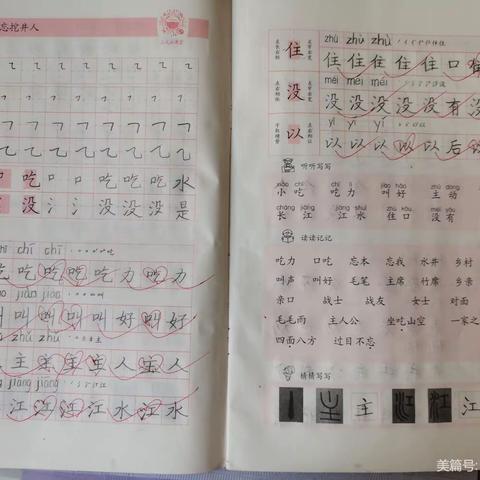 忘挖井人
吃 吃 吃 吃 水
没 没 没 没 是
chī chī
吃 吃 吃 吃 吃 力
jiào jiào
叫 叫 叫 叫 好 叫 好
zhǔ zhǔ
主 主 主 主 人 主 人
jiāng jiāng
江 江 江 江 水 江 水
zhù zhù zhù
住 住 住 住 住 住 口
méi méi méi
没 没 没 没 没 没 有 没
yǐ yǐ yǐ
以 以 以 以 以 以 后
听听写写
xiǎo chī chī lì jiào hǎo zhǔ dòng
小吃 吃力 叫好 主动
cháng jiāng jiāng shuǐ zhù kǒu méi yǒu
长江 江水 住口 没有
读读记记
吃力 口吃 忘本 忘我 水井 乡村
叫声 叫好 毛笔 主席 竹席 乡亲
亲口 战士 战友 女士 对面
毛毛雨 主人公 坐吃山空 一家之
四面八方 过目不忘
猜猜写写
主 江
美篇号: